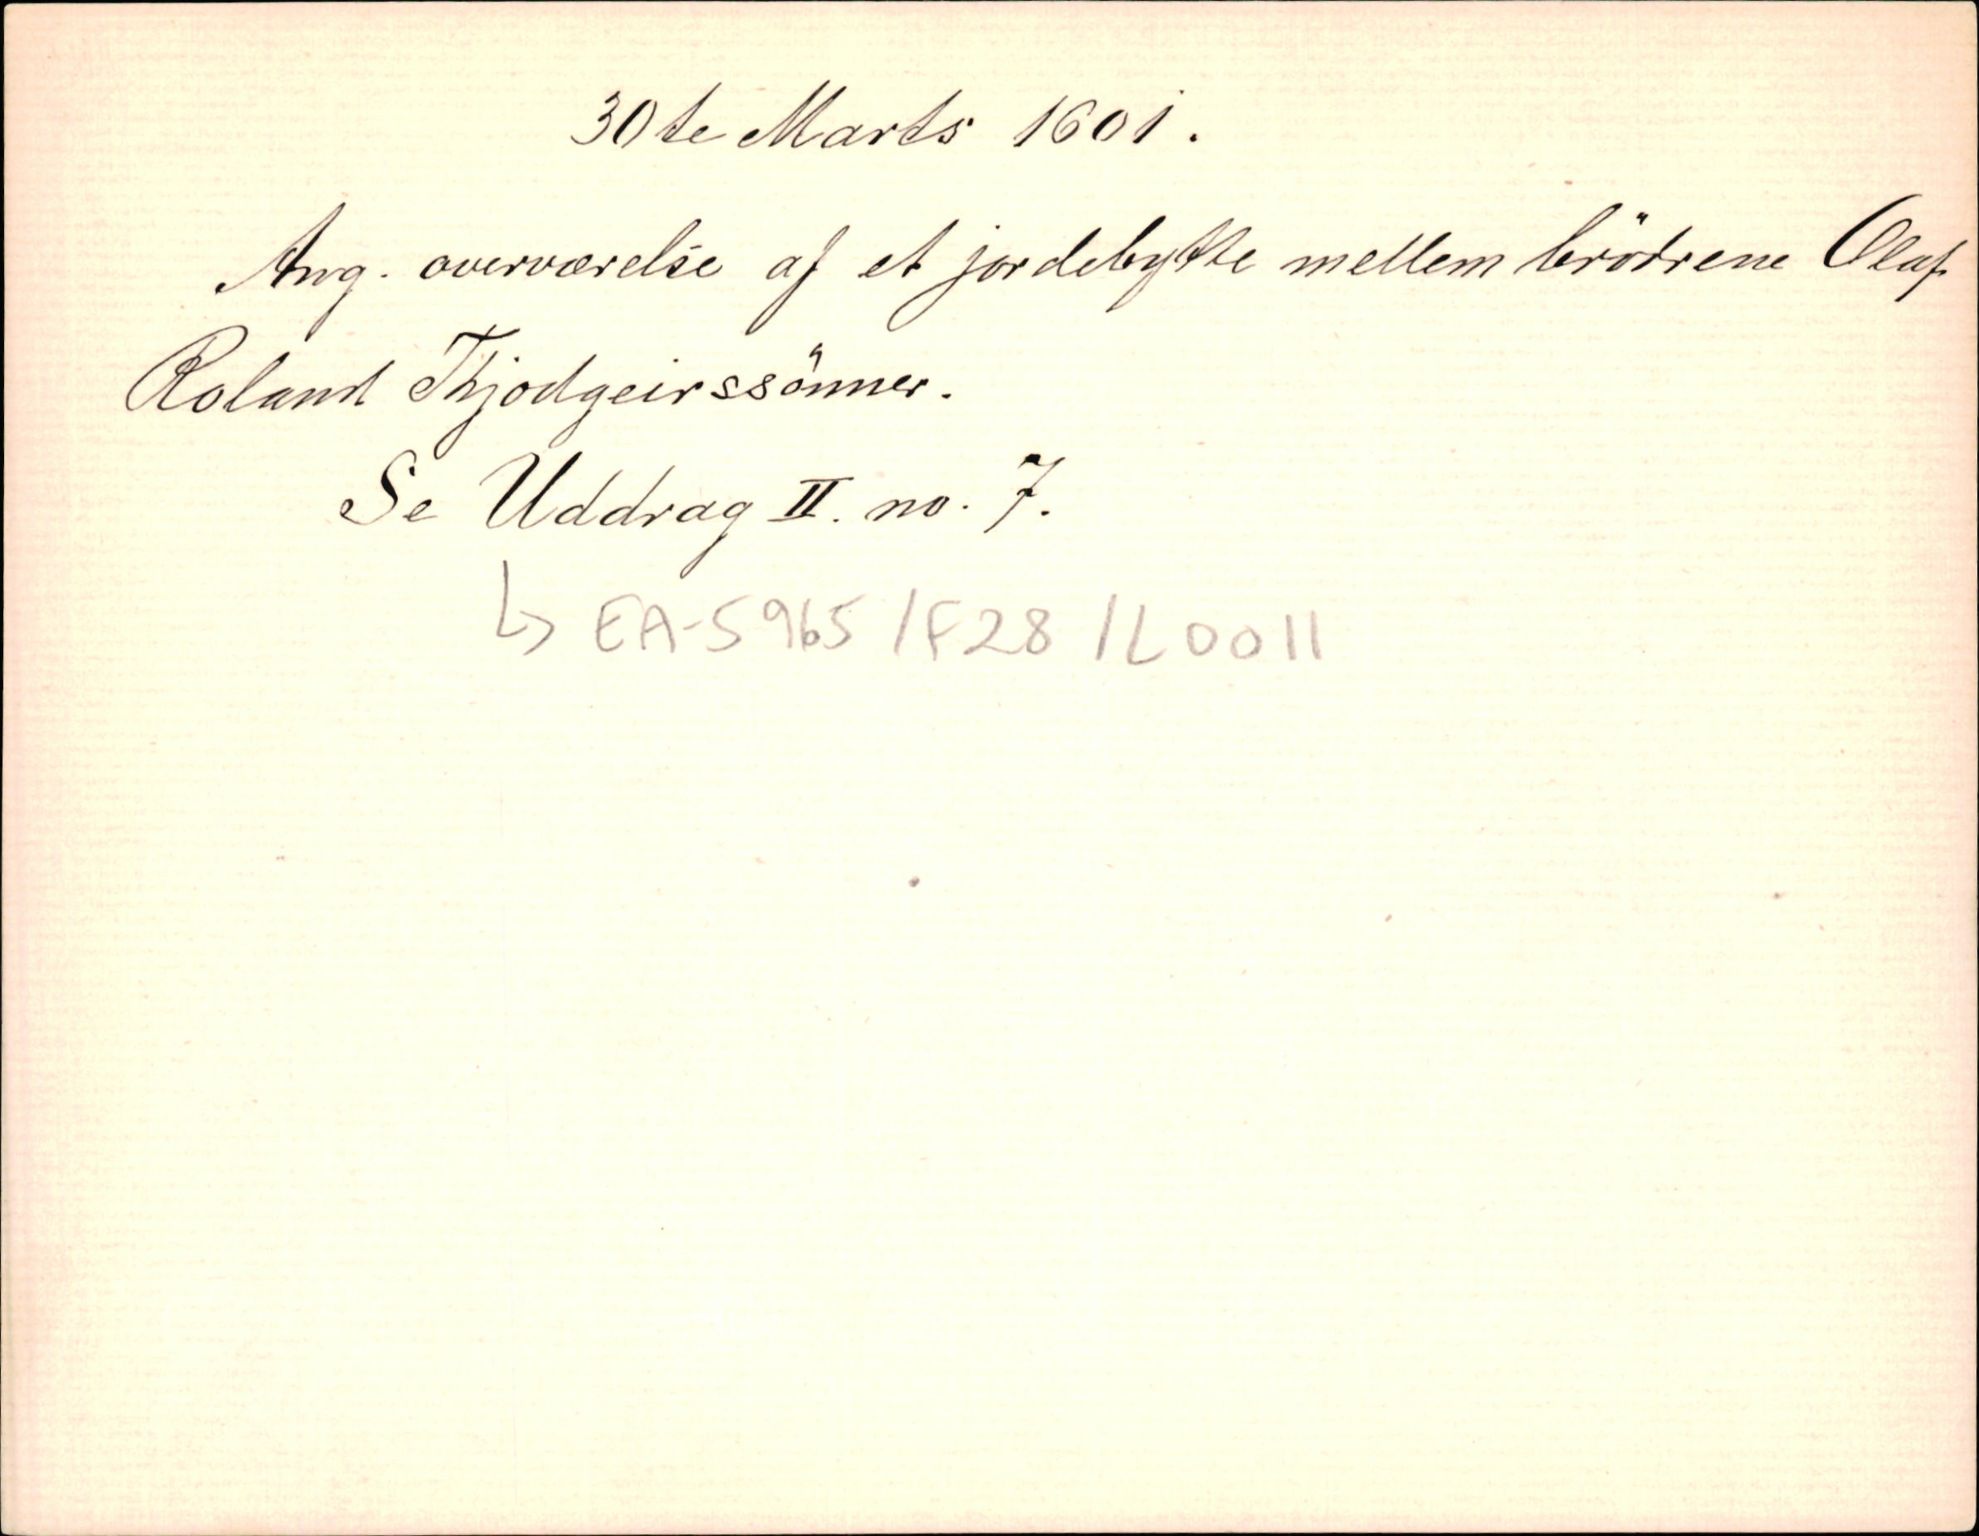 30te Marts 1601.
Ang. overværelse af et jordebytte mellem brödrene Olaf
Roland Thjodgeirssönner.
Se Uddrag II. no. 7.
↳ EA-5965/F28/L0011